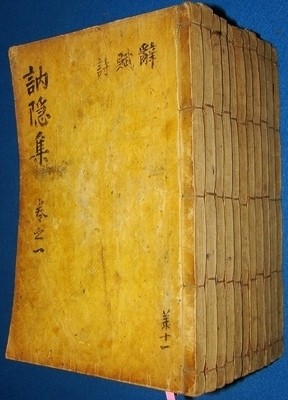 訥隐集 卷之一
辭
賦
詩
共十一